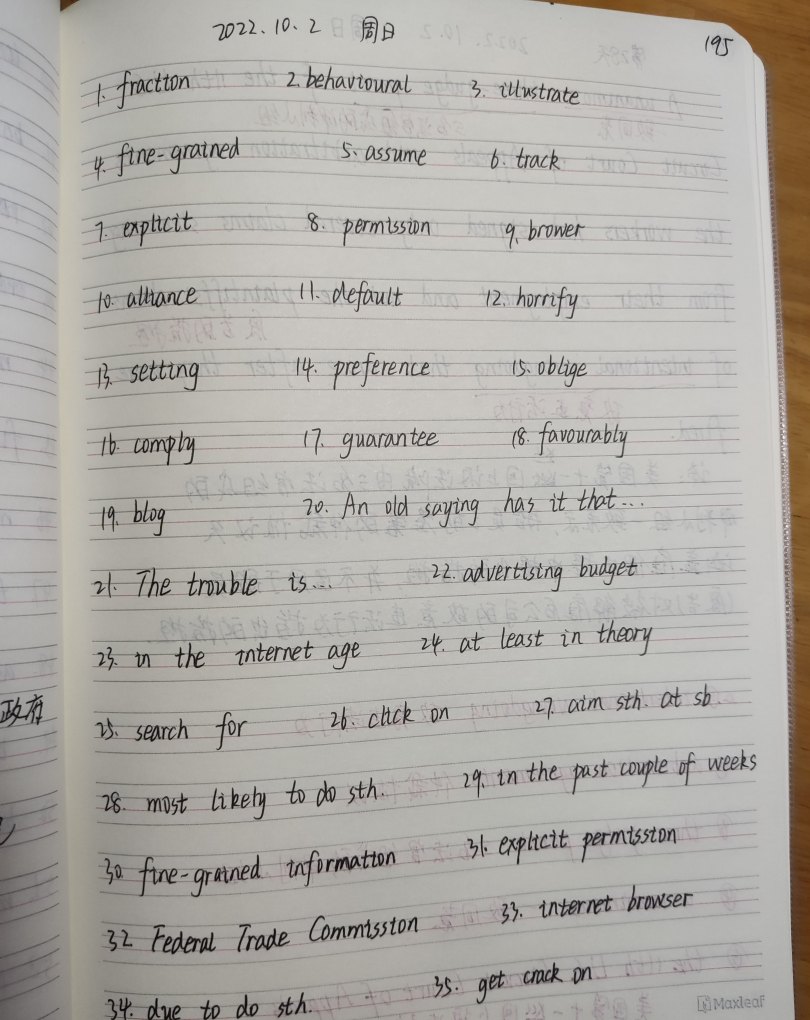 2022.10.2 周日
195
1. fraction 2. behavioural 3. illustrate
4. fine-grained 5. assume 6. track
7. explicit 8. permission 9. brower
10. alliance 11. default 12. horrify
13. setting 14. preference 15. oblige
16. comply 17. guarantee 18. favourably
19. blog 20. An old saying has it that...
21. The trouble is... 22. advertising budget
23. in the internet age 24. at least in theory
政府
25. search for 26. click on 27. aim sth. at sb
28. most likely to do sth. 29. in the past couple of weeks
30. fine-grained information 31. explicit permission
32. Federal Trade Commission 33. internet browser
34. due to do sth. 35. get crack on
Maxleaf